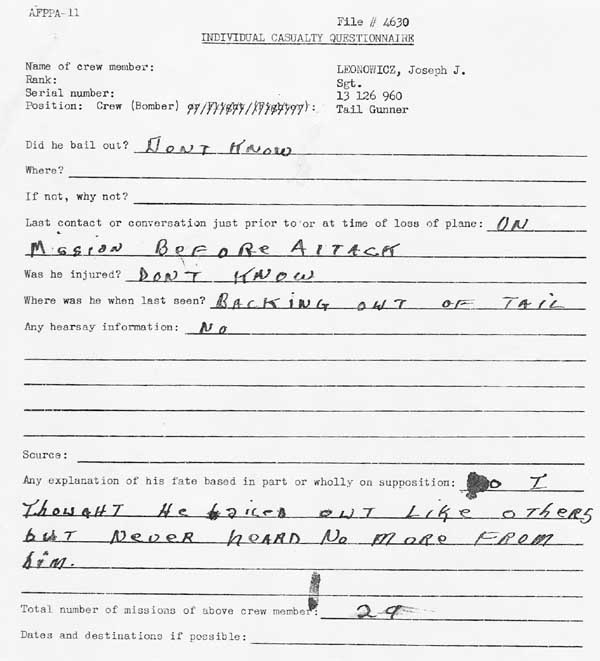 AFPPA-11
File # 4630
INDIVIDUAL CASUALTY QUESTIONNAIRE
Name of crew member: LEONOWICZ, Joseph J.
Rank: Sgt.
Serial number: 13 126 960
Position: Crew (Bomber) or Flight (Fighter): Tail Gunner
Did he bail out? DONT KNOW
Where?
If not, why not?
Last contact or conversation just prior to or at time of loss of plane: ON
MISSION BEFORE ATTACK
Was he injured? DON'T KNOW
Where was he when last seen? BACKING OUT OF TAIL
Any hearsay information: NO
Source:
Any explanation of his fate based in part or wholly on supposition: I
THOUGHT HE BAILED OUT LIKE OTHERS
but NEVER HEARD NO MORE FROM
him.
Total number of missions of above crew member: 29
Dates and destinations if possible: